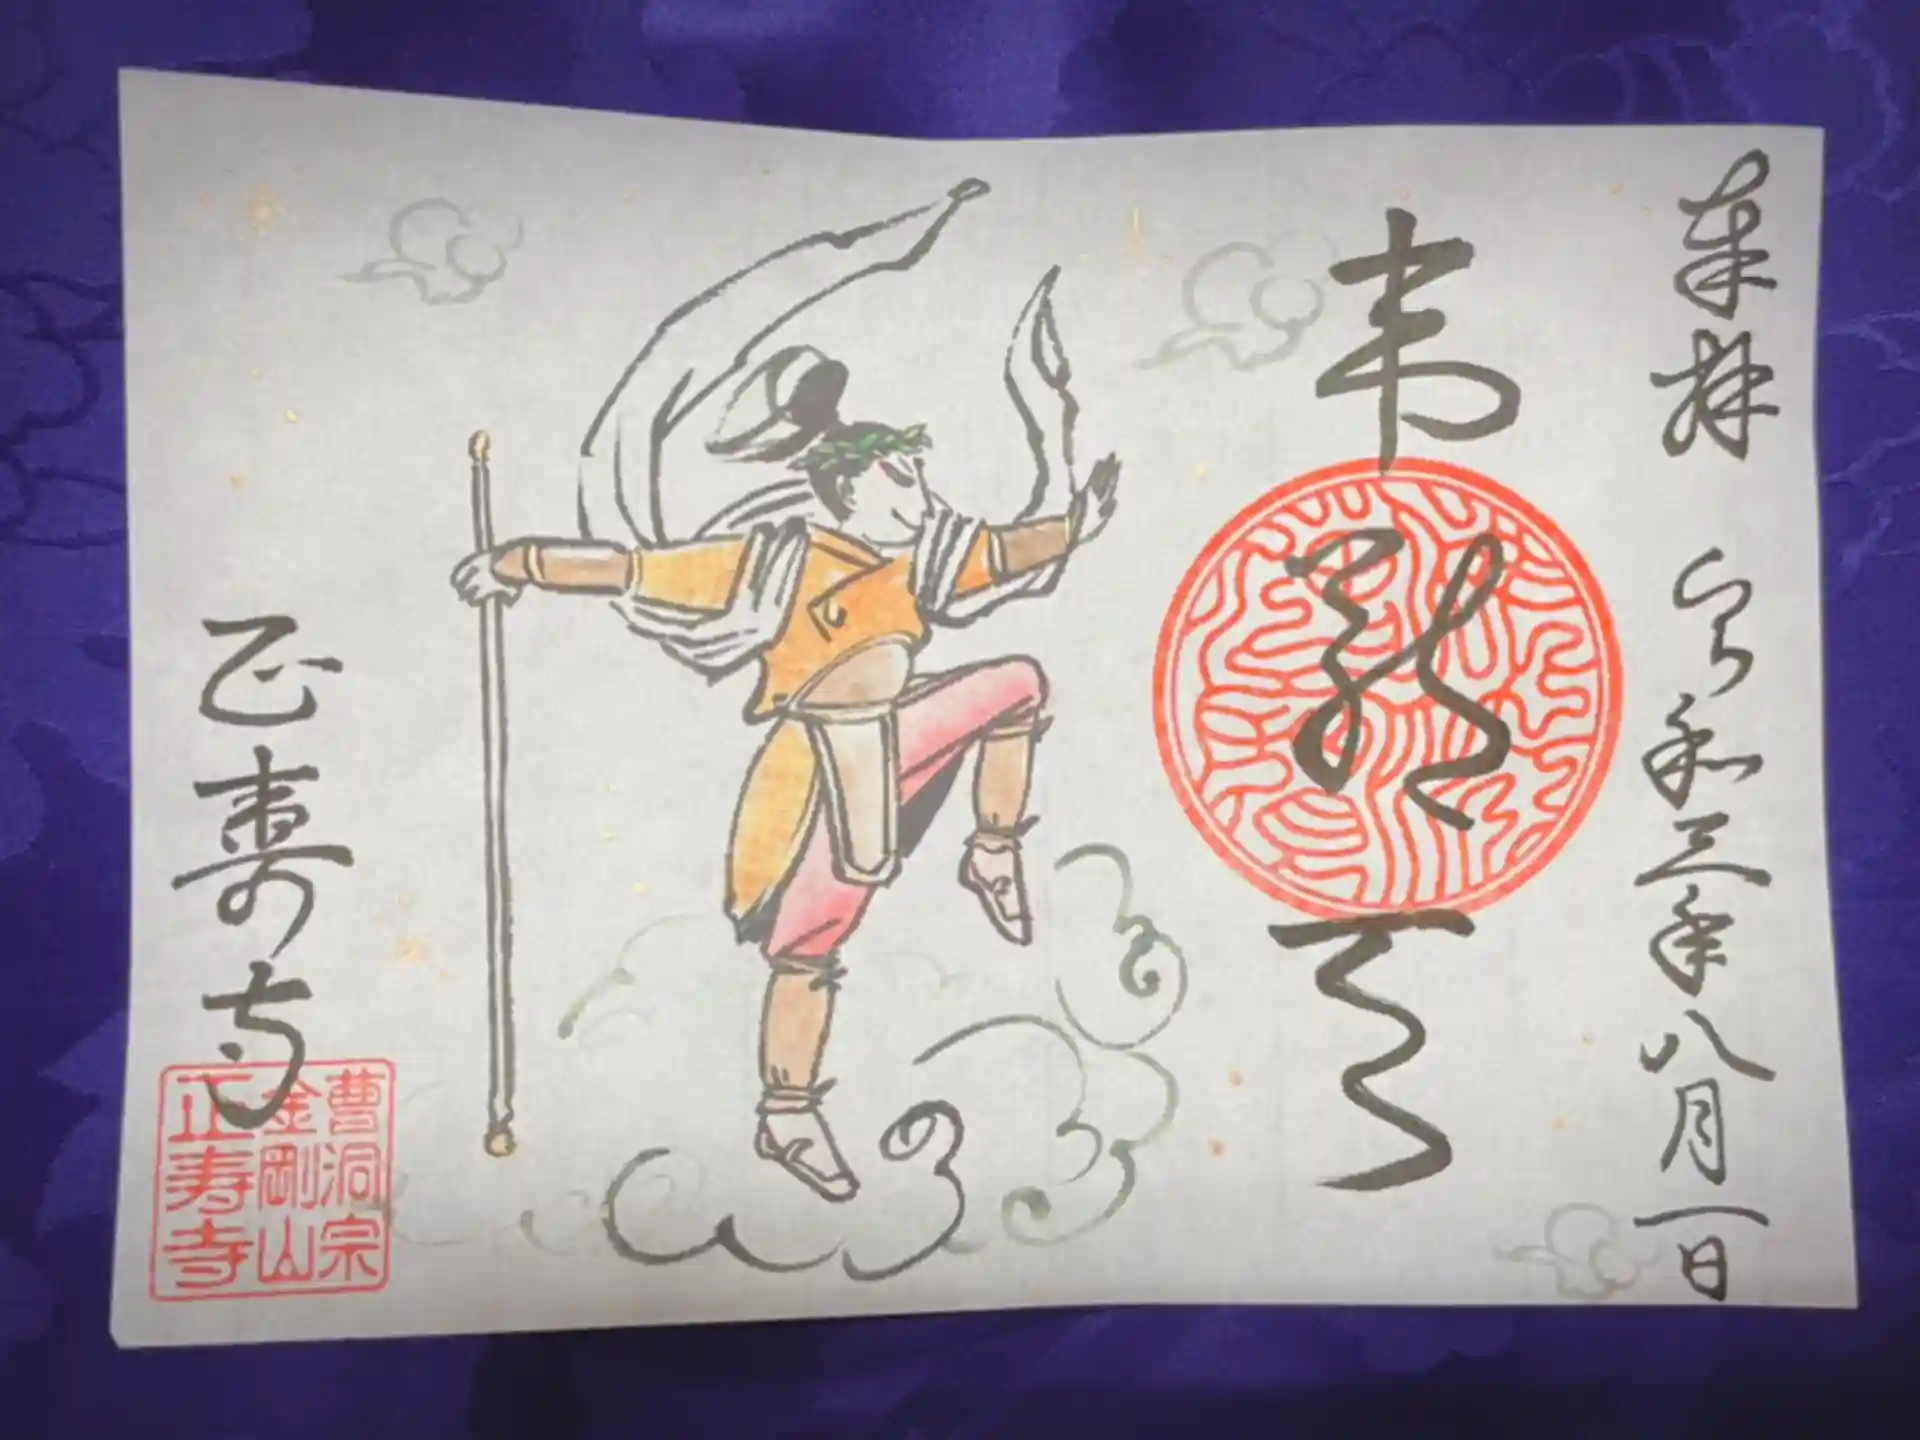 奉拝 令和三年八月一日
韦駄天
正寿寺
曹洞宗
金剛山
正寿寺